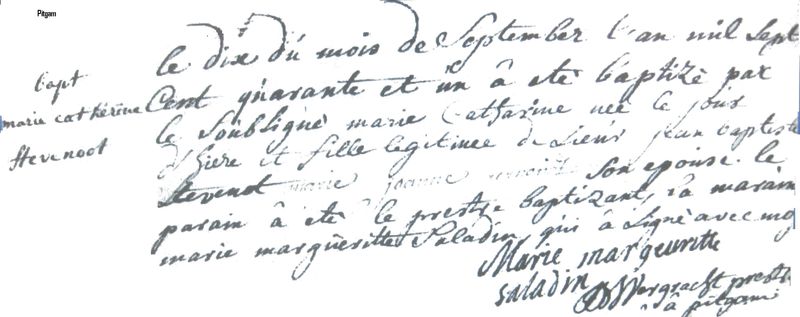 Pitgam
bapt
marie catherine
Stevenoot
le dix du mois de September l'an mil sept
Cent quarante et un à eté baptizé par
le Soubsigné marie Catharine née le jour
d'hiere et fille legitimee de Sieur jean baptiste
Stevenot marie joanne son epouse. le
parain à eté le prestre baptizant, la marain
marie margueritte Saladin, qui à Signé avec moy
Marie margueritte
saladin
prestre
à pitgam